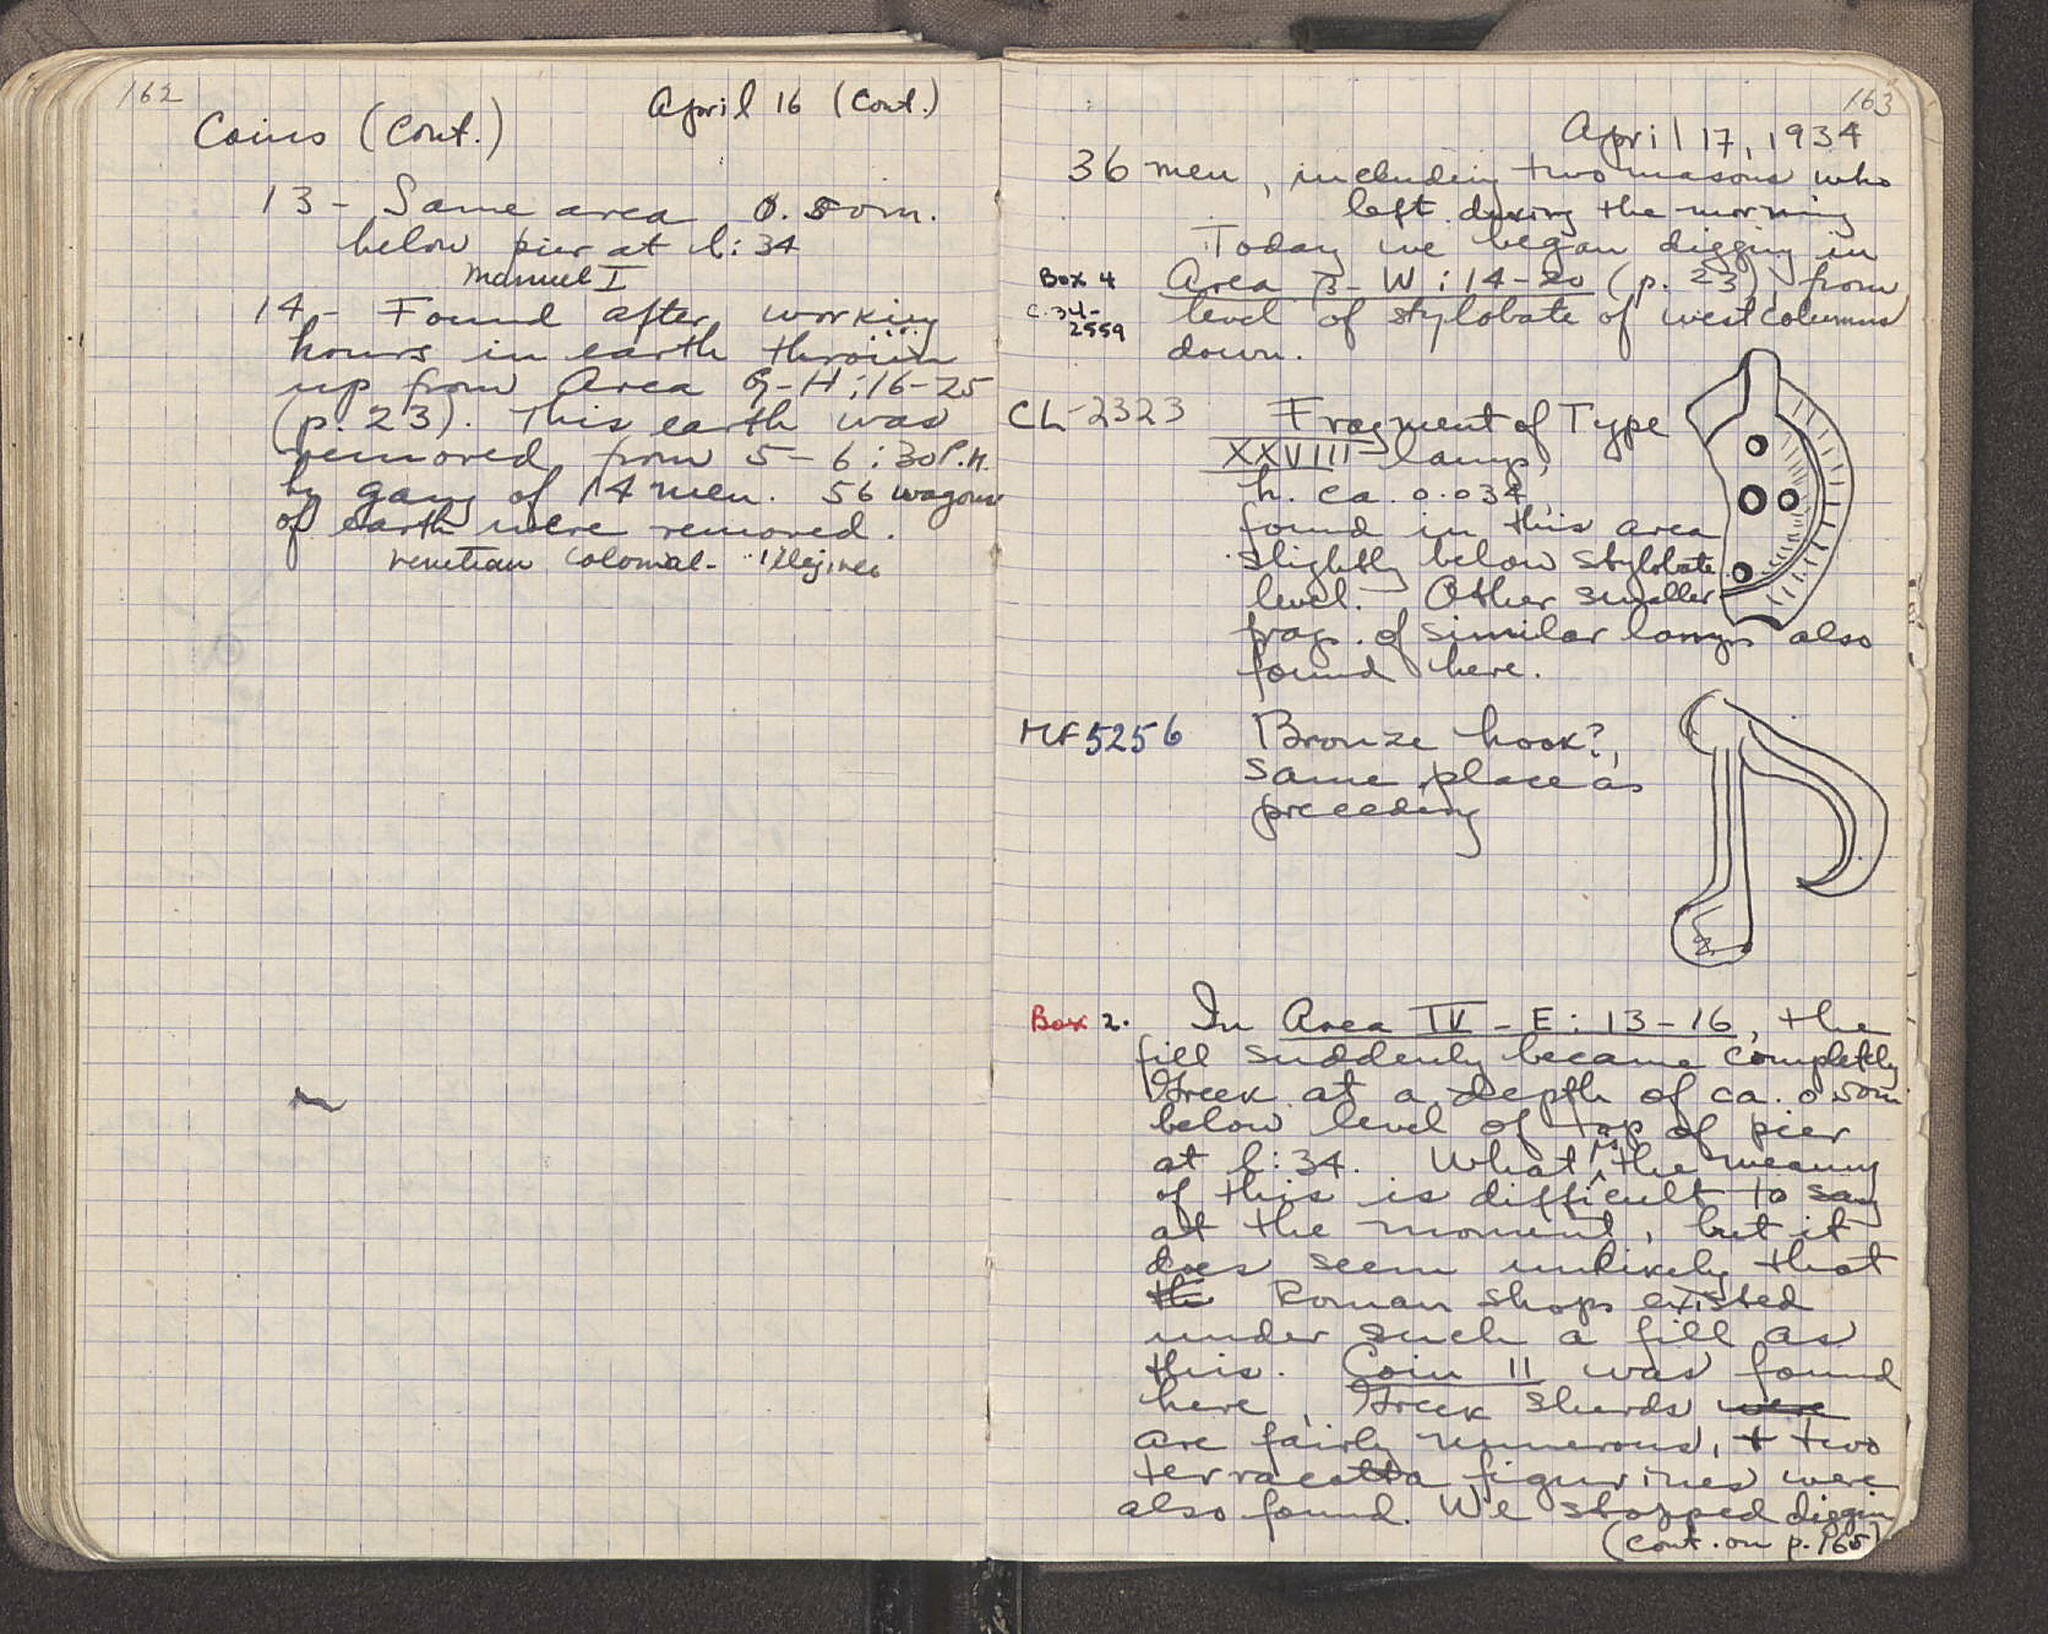 162
April 16 (Cont.)
Coins (Cont.)
13 - Same area 0.50m.
below pier at b:34
Manuel I
14 - Found after working
hours in earth thrown
up from Area G-H:16-25
(p. 23). This earth was
removed from 5-6:30 P.M.
by gang of 14 men. 56 wagons
of earth were removed.
Venetian Colonial -
163
April 17, 1934
36 men, including two masons who
left during the morning
Today we began digging in
Box 4 Area β-W:14-20 (p. 23) from
C-34-2559 level of stylobate of west columns
down.
CL-2323 Fragment of Type
XXVIII lamp,
h. ca. 0.034
found in this area
slightly below stylobate
level. Other smaller
frags. of similar lamps also
found here.
MF5256 Bronze hook?,
same place as
preceding
Box 2. In Area IV-E:13-16, the
fill suddenly became completely
Greek at a depth of ca. 0.50m
below level of top of pier
at b:34. What is the meaning
of this is difficult to say
at the moment, but it
does seem unlikely that
the Roman shops existed
under such a fill as
this. Coin 11 was found
here, Greek sherds were
are fairly numerous, + two
terracotta figurines were
also found. We stopped diggin
(Cont. on p. 165)